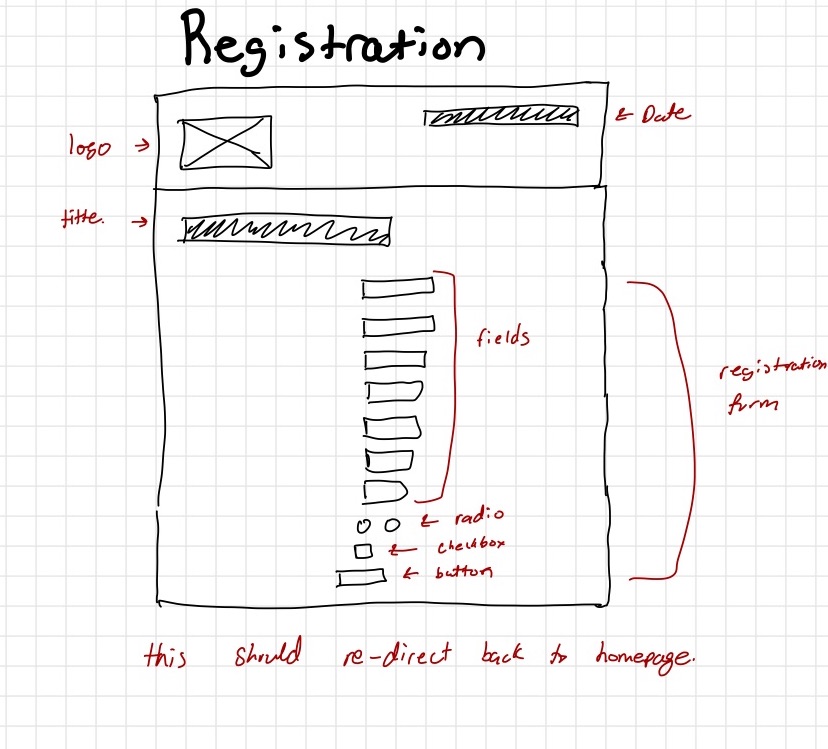 Registration
logo
Date
title.
fields
registration
form
radio
checkbox
button
this should re-direct back to homepage.